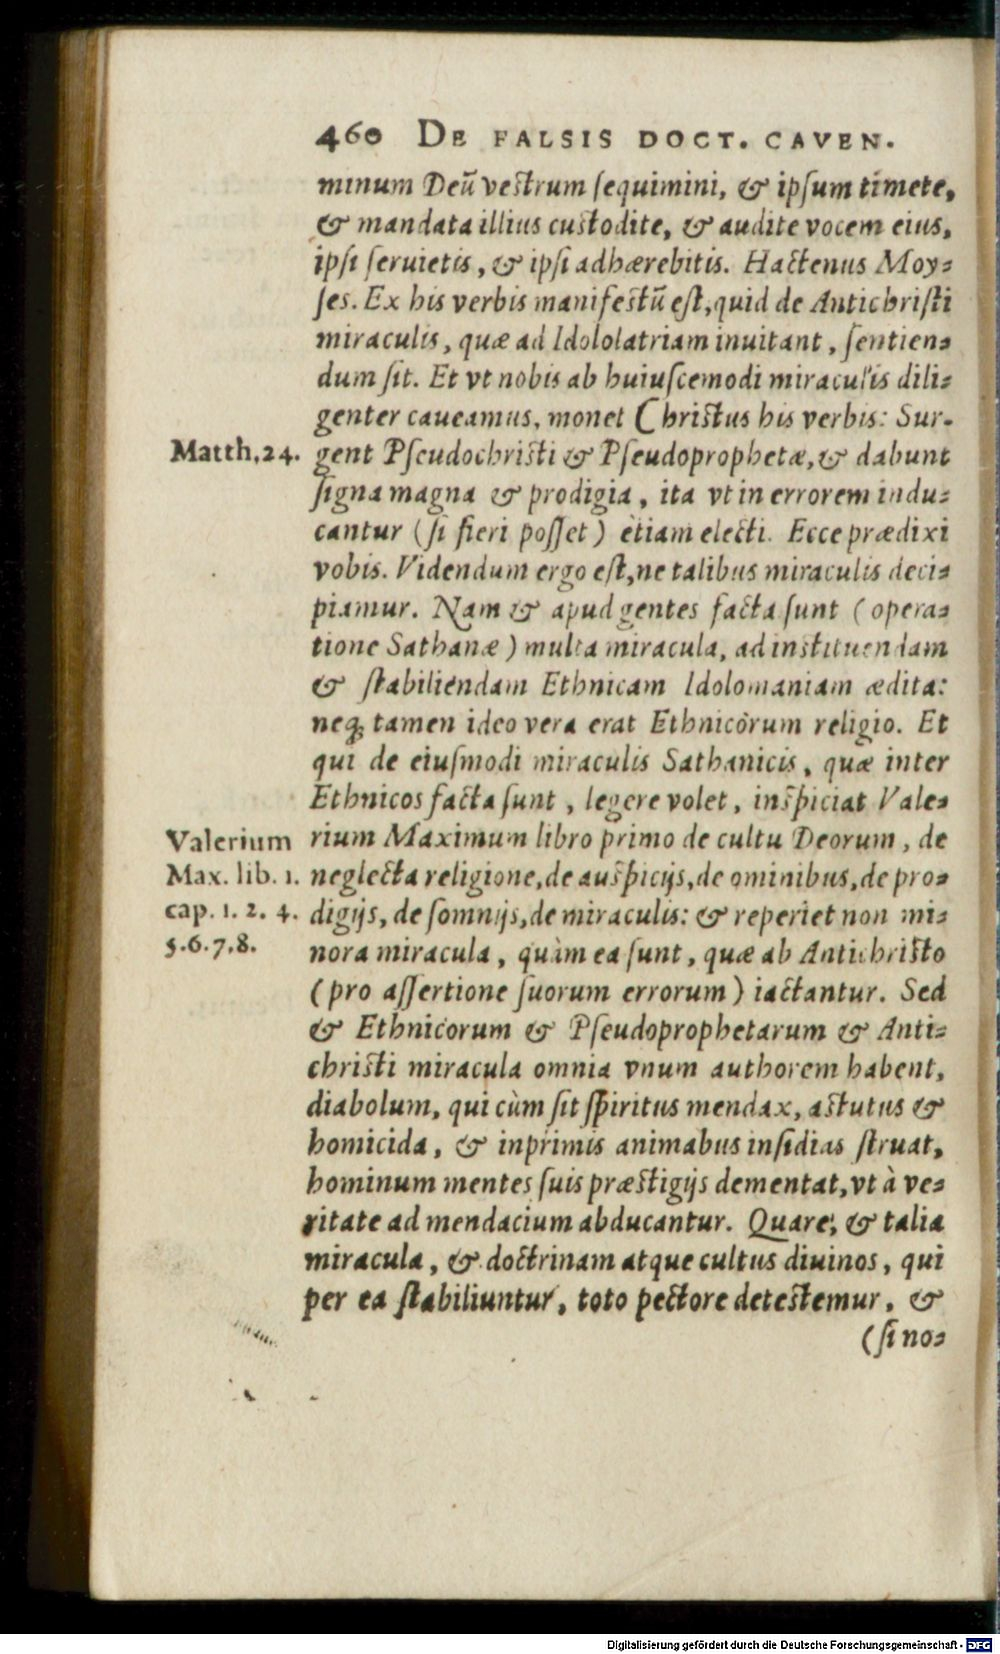 460 DE FALSIS DOCT. CAVEN.
minum Deū vestrum sequimini, & ipsum timete,
& mandata illius custodite, & audite vocem eius,
ipsi seruietis, & ipsi adhærebitis. Hactenus Moy-
ses. Ex his verbis manifestū est, quid de Antichristi
miraculis, quæ ad Idololatriam inuitant, sentien-
dum sit. Et vt nobis ab huiuscemodi miraculis dili-
genter caueamus, monet Christus his verbis: Sur-
Matth. 24. gent Pseudochristi & Pseudoprophetæ, & dabunt
signa magna & prodigia, ita vt in errorem indu-
cantur (si fieri posset) etiam electi. Ecce prædixi
vobis. Videndum ergo est, ne talibus miraculis deci-
piamur. Nam & apud gentes facta sunt (opera-
tione Sathanæ) multa miracula, ad instituendam
& stabiliendam Ethnicam Idolomaniam ædita:
neq; tamen ideo vera erat Ethnicorum religio. Et
qui de eiusmodi miraculis Sathanicis, quæ inter
Ethnicos facta sunt, legere volet, inspiciat Vale-
Valerium rium Maximum libro primo de cultu Deorum, de
Max. lib. 1. neglecta religione, de auspicijs, de ominibus, de pro-
cap. 1. 2. 4. digijs, de somnijs, de miraculis: & reperiet non mi-
5. 6. 7. 8. nora miracula, quàm ea sunt, quæ ab Antichristo
(pro assertione suorum errorum) iactantur. Sed
& Ethnicorum & Pseudoprophetarum & Anti-
christi miracula omnia vnum authorem habent,
diabolum, qui cùm sit spiritus mendax, astutus &
homicida, & inprimis animabus insidias struat,
hominum mentes suis præstigijs dementat, vt à ve-
ritate ad mendacium abducantur. Quare, & talia
miracula, & doctrinam atque cultus diuinos, qui
per ea stabiliuntur, toto pectore detestemur, &
(si no-
Digitalisierung gefördert durch die Deutsche Forschungsgemeinschaft - DFG